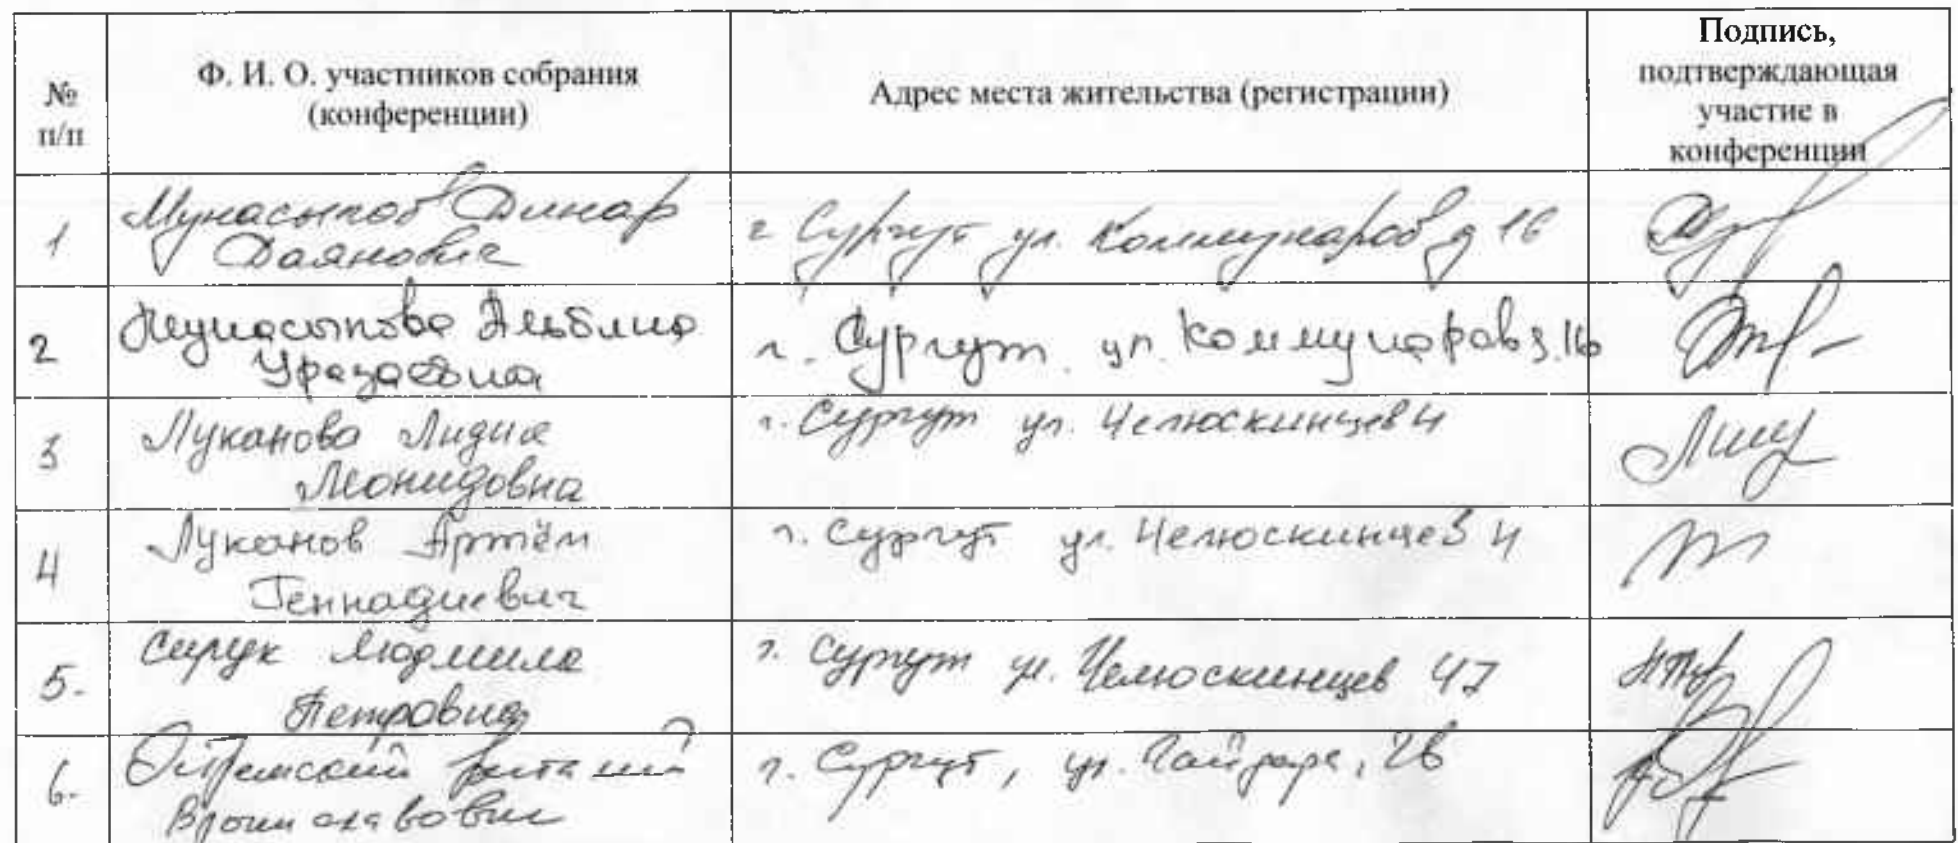 № п/п
Ф. И. О. участников собрания (конференции)
Адрес места жительства (регистрации)
Подпись, подтверждающая участие в конференции
1
Мунасыпов Динар
Даянович
г Сургут ул. Коммунаров д 16
2
Мунасыпова Альбина
Уразаевна
г. Сургут. ул. Коммунаров д. 16
3
Луканова Лидия
Леонидовна
г. Сургут ул. Челюскинцев 4
4
Луканов Артём
Геннадиевич
г. Сургут ул. Челюскинцев 4
5.
Сирук Людмила
Петровна
г. Сургут ул. Челюскинцев 47
6.
Виталий
Брониславович
г. Сургут, ул. Гайдара, 26